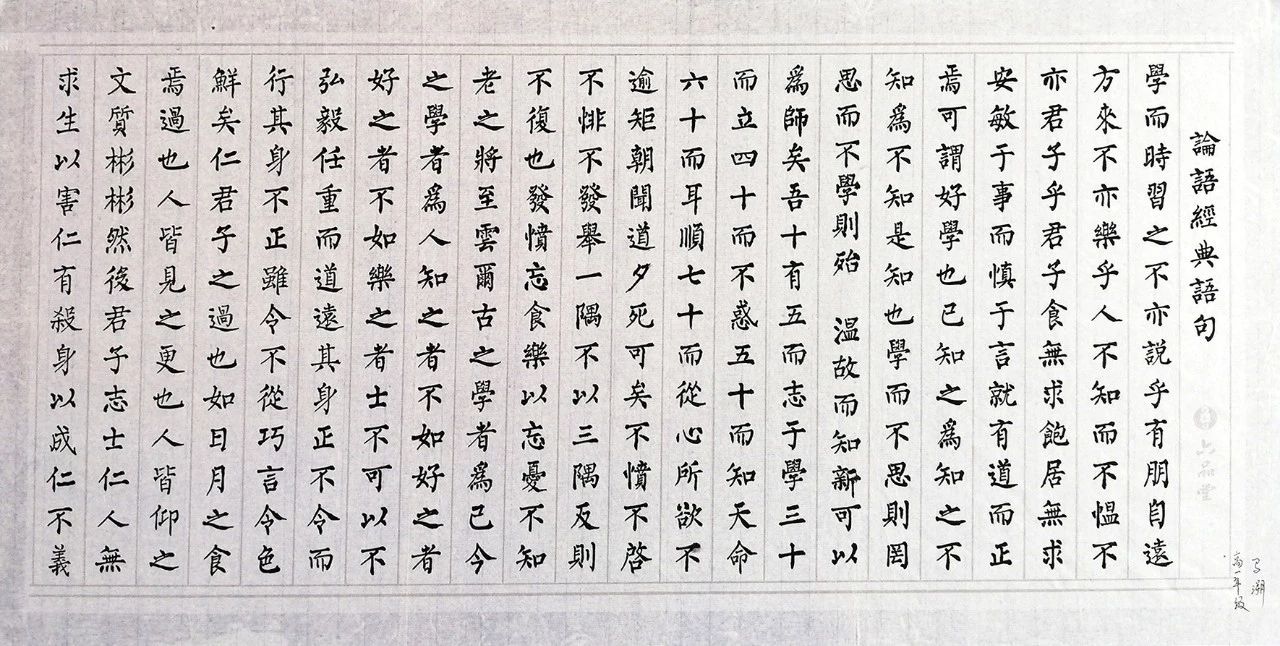 論語經典語句
學而時習之不亦説乎有朋自遠
方來不亦樂乎人不知而不愠不
亦君子乎君子食無求飽居無求
安敏于事而慎于言就有道而正
焉可謂好學也已知之爲知之不
知爲不知是知也學而不思則罔
思而不學則殆 温故而知新可以
爲師矣吾十有五而志于學三十
而立四十而不惑五十而知天命
六十而耳順七十而從心所欲不
逾矩朝聞道夕死可矣不憤不啓
不悱不發舉一隅不以三隅反則
不復也發憤忘食樂以忘憂不知
老之將至雲爾古之學者爲己今
之學者爲人知之者不如好之者
好之者不如樂之者士不可以不
弘毅任重而道遠其身正不令而
行其身不正雖令不從巧言令色
鮮矣仁君子之過也如日月之食
焉過也人皆見之更也人皆仰之
文質彬彬然後君子志士仁人無
求生以害仁有殺身以成仁不義
六品堂
高一年級